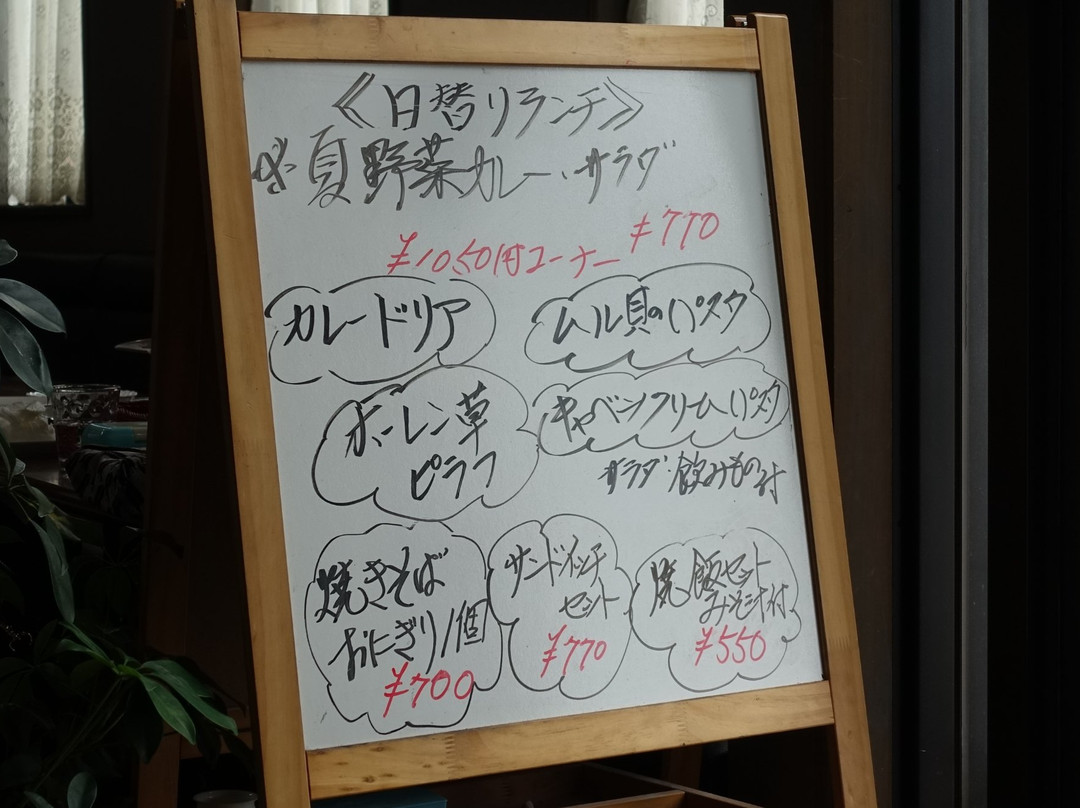 《日替りランチ》
夏野菜カレー・サラダ
¥770
¥1050円コーナー
カレードリア
ムル貝のパスタ
ホーレン草
ピラフ
キャベツクリームパスタ
サラダ・飲みもの付
焼きそば
おにぎり1個
¥700
サンドイッチ
セット
¥770
焼飯セット
みそ汁付
¥550